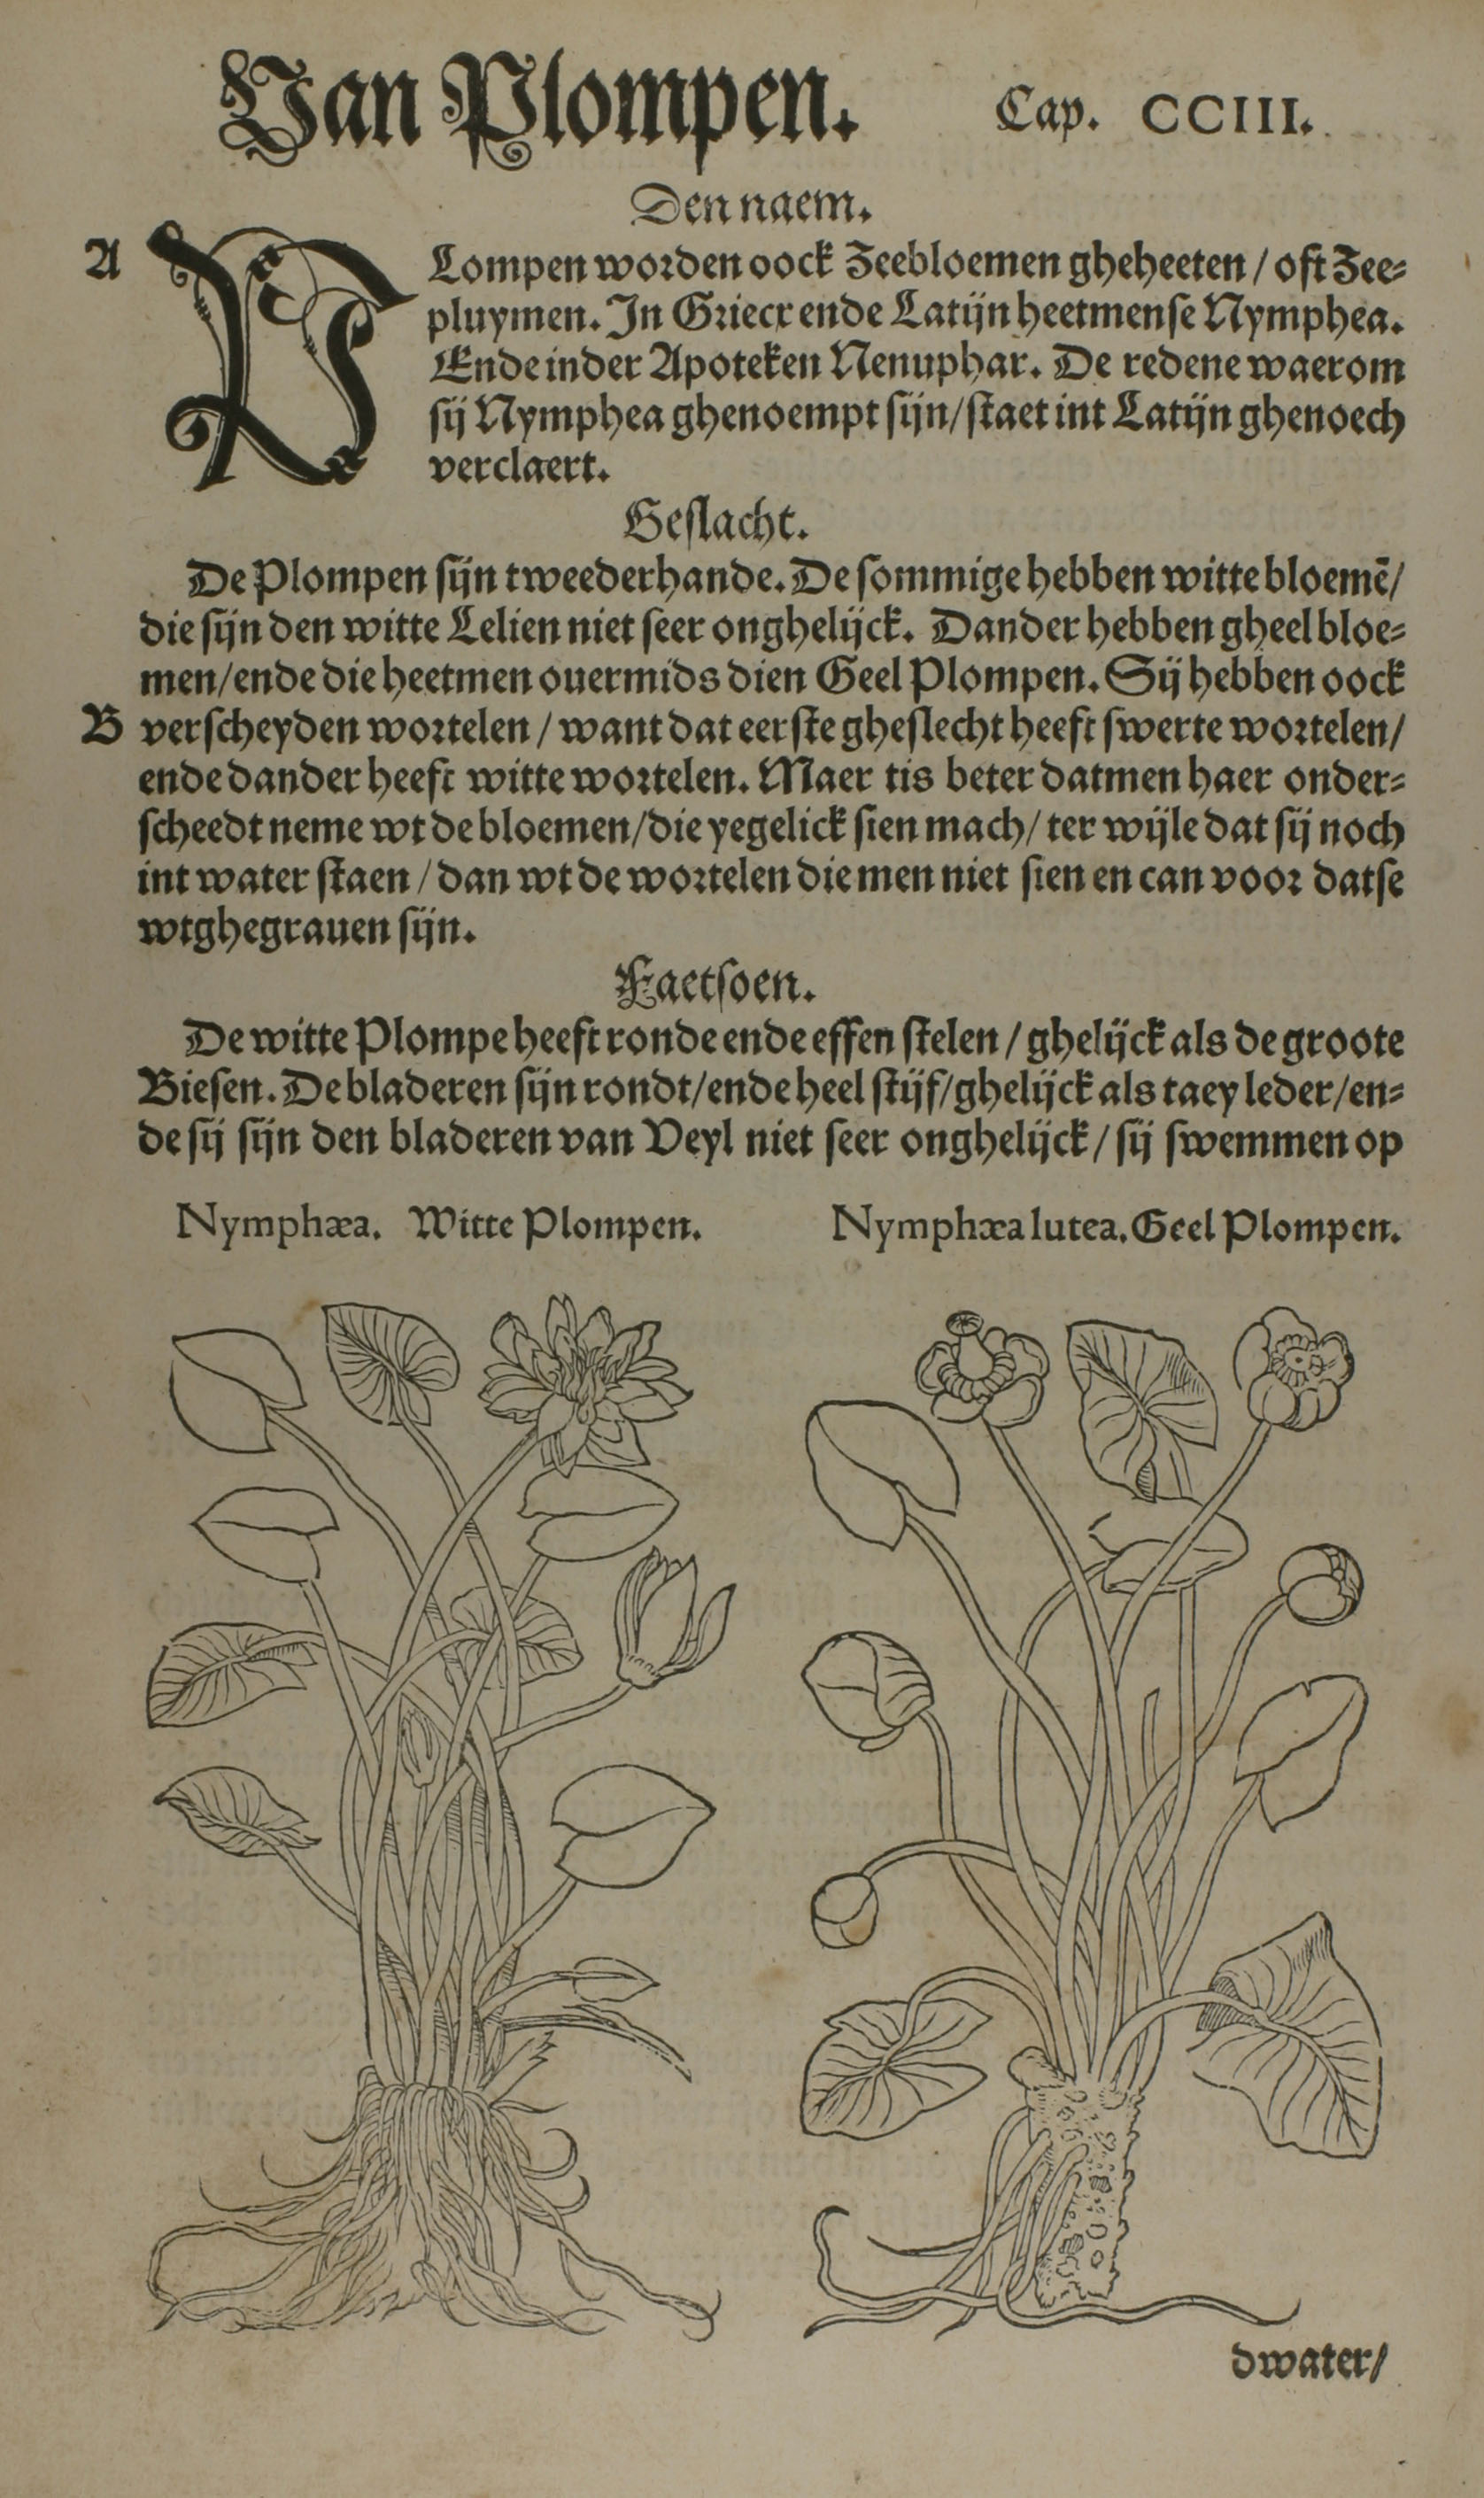 Van Plompen. Cap. CCIII.
Den naem.
A PLompen worden oock Zeebloemen gheheeten / oft Zee=
pluymen. In Griecx ende Latijn heetmense Nymphea.
Ende inder Apoteken Nenuphar. De redene waerom
sij Nymphea ghenoempt sijn/staet int Latijn ghenoech
verclaert.
Geslacht.
De Plompen sijn tweederhande. De sommige hebben witte bloemē/
die sijn den witte Lelien niet seer onghelijck. Dander hebben gheel bloe=
men/ende die heetmen ouermids dien Geel Plompen. Sij hebben oock
B verscheyden wortelen / want dat eerste gheslecht heeft swerte wortelen/
ende dander heeft witte wortelen. Maer tis beter datmen haer onder=
scheedt neme wt de bloemen/die yegelick sien mach/ ter wijle dat sij noch
int water staen / dan wt de wortelen die men niet sien en can voor datse
wtghegrauen sijn.
Faetsoen.
De witte Plompe heeft ronde ende effen stelen / ghelijck als de groote
Biesen. De bladeren sijn rondt/ende heel stijf/ghelijck als taey leder/en=
de sij sijn den bladeren van Veyl niet seer onghelijck / sij swemmen op
Nymphæa. Witte Plompen. Nymphæa lutea. Geel Plompen.
dwater/